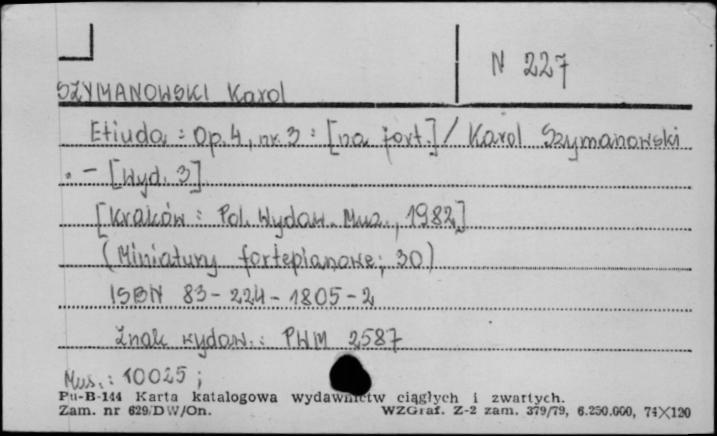 N 227
SZYMANOWSKI Karol
Etiuda : Op. 4, nr 3 : [na fort.] / Karol Szymanowski
. - [Wyd. 3].
[Kraków : Pol. Wydaw. Muz., 1982]
(Miniatury fortepianowe; 30)
ISBN 83-224-1805-2
Znak wydaw.: PWM 2587
Mus.: 10025 ;
Pu-B-144 Karta katalogowa wydawnictw ciągłych i zwartych.
Zam. nr 629/DW/On. WZGraf. Z-2 zam. 379/79, 6.250.000, 74×120